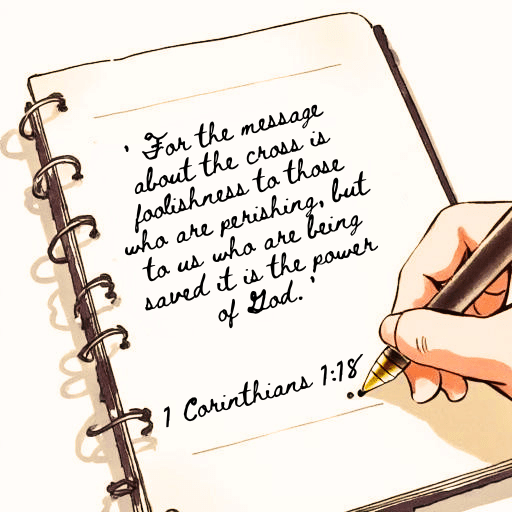 ' For the message
about the cross is
foolishness to those
who are perishing, but
to us who are being
saved it is the power
of God. '
1 Corinthians 1:18